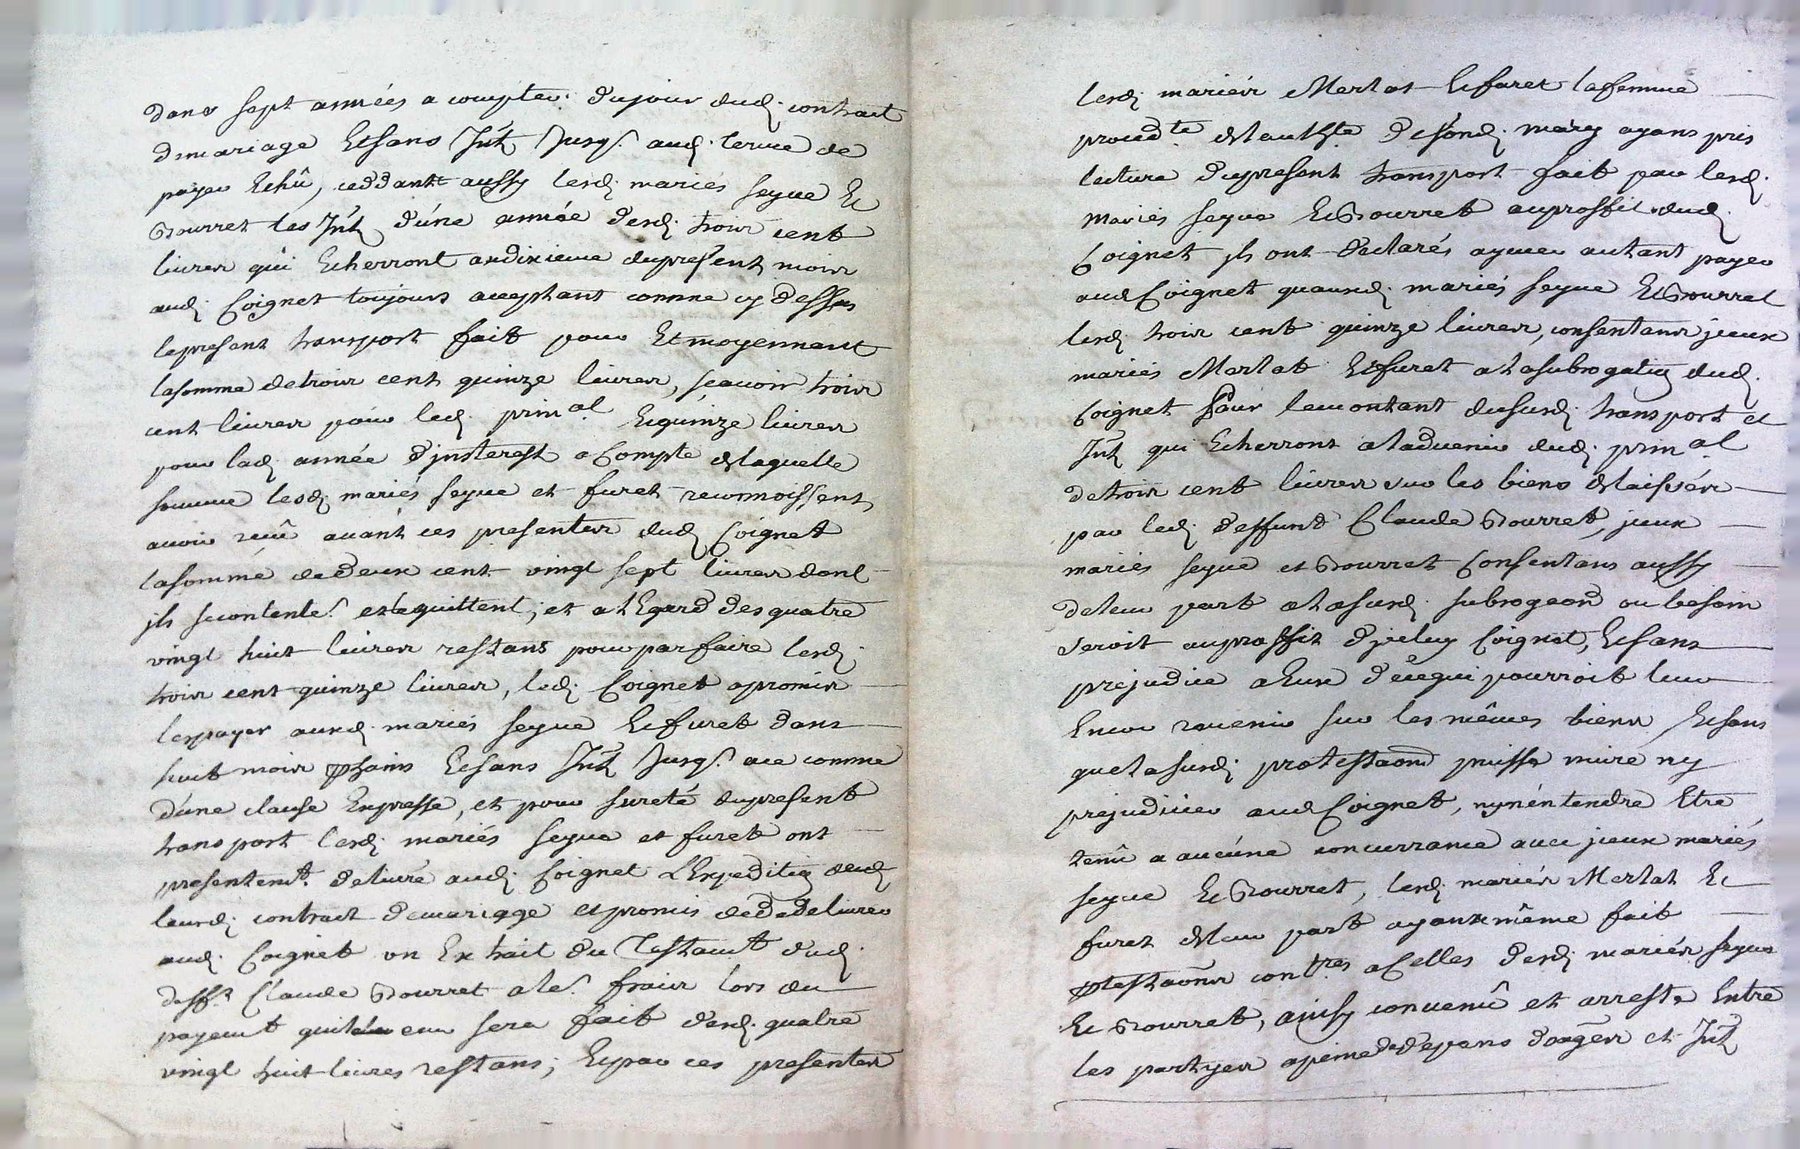 dans sept années a compter du jour dud. contract
de mariage Et sans Int. jusq. aud. terme de
payer Echû, ceddant aussy lesd. mariés seyve Et
Bourret les Int. d'une année desd. trois cent
livres qui Echerront au dixieme du présent mois
aud. Coignet toujours acceptant comme cy dessus
le present transport fait pour Et moyennant
la somme de trois cent quinze livres, sçavoir trois
cent livres pour led. prin.al Et quinze livres
pour lad. année d'jnterest a Compte de laquelle
somme lesd. mariés seyve et furet reconnoissent
avoir reçû avant ces presentes dud. Coignet
la somme de deux cent vingt sept livres dont
jls se contente. et le quittent; et a l'Egard des quatre
vingt huit livres restans pour parfaire lesd.
trois cent quinze livres, led. Coignet a promis
les payer auxd. mariés seyve Et furet dans
huit mois pchains Et sans Int. jusq. a ce comme
d'une clause Expresse, et pour sureté du present
transport lesd. mariés seyve et furet ont
presentemt. delivré aud. Coignet L'Expedition de
leurd. contract de mariage et promis de delivrer
aud. Coignet un Extrait du Testamt. dud.
deff.t Claude Bourret a ses fraix lors du
payemt qui leur en sera fait desd. quatre
vingt huit livres restans; Et par ces presentes
lesd. mariés Merlat Et furet la femme
proced.te de l'auth.te de sond. mary ayans pris
lecture du present transport fait par lesd.
mariés seyve Et Bourret au proffit dud.
Coignet jls ont declarés aymer autant payer
aud Coignet qu'auxd. mariés seyve Et Bourret
lesd. trois cent quinze livres, consentans jceux
mariés Merlat Et furet a la subrogation dud.
Coignet pour le montant du susd. transport et
Int. qui Echerront a l'advenir dud. prin.al
de trois cent livres sur les biens delaissés
par led. deffunt Claude Bourret, jceux
mariés seyve et Bourret Consentans aussy
de leur part a la susd. subrogeaon ou besoin
seroit au proffit d'jceluy Coignet, Et sans
prejudice a Eux de ce qui pourroit leur
Encor revenir sur les mêmes biens Et sans
que la susd. protestaon puisse nuire ny
prejudicier aud Coignet, ny n'entendre Etre
tenû a aucune concurrance avec jceux mariés
seyve Et Bourret, lesd. mariés Merlat Et
furet de leur part ayant même fait
ptestaons contres a Celles desd. mariés seyve
Et Bourret, ainsy convenû et arresté Entre
les partyes a peine de depens domges et Int.